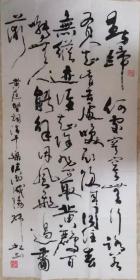 春歸何處寂寞無行路若
有人知春去處喚取歸來同住春
無踪跡誰知除非問取黃鸝百
囀無人能解因風飛過薔
薇
黃庭堅詞清平樂